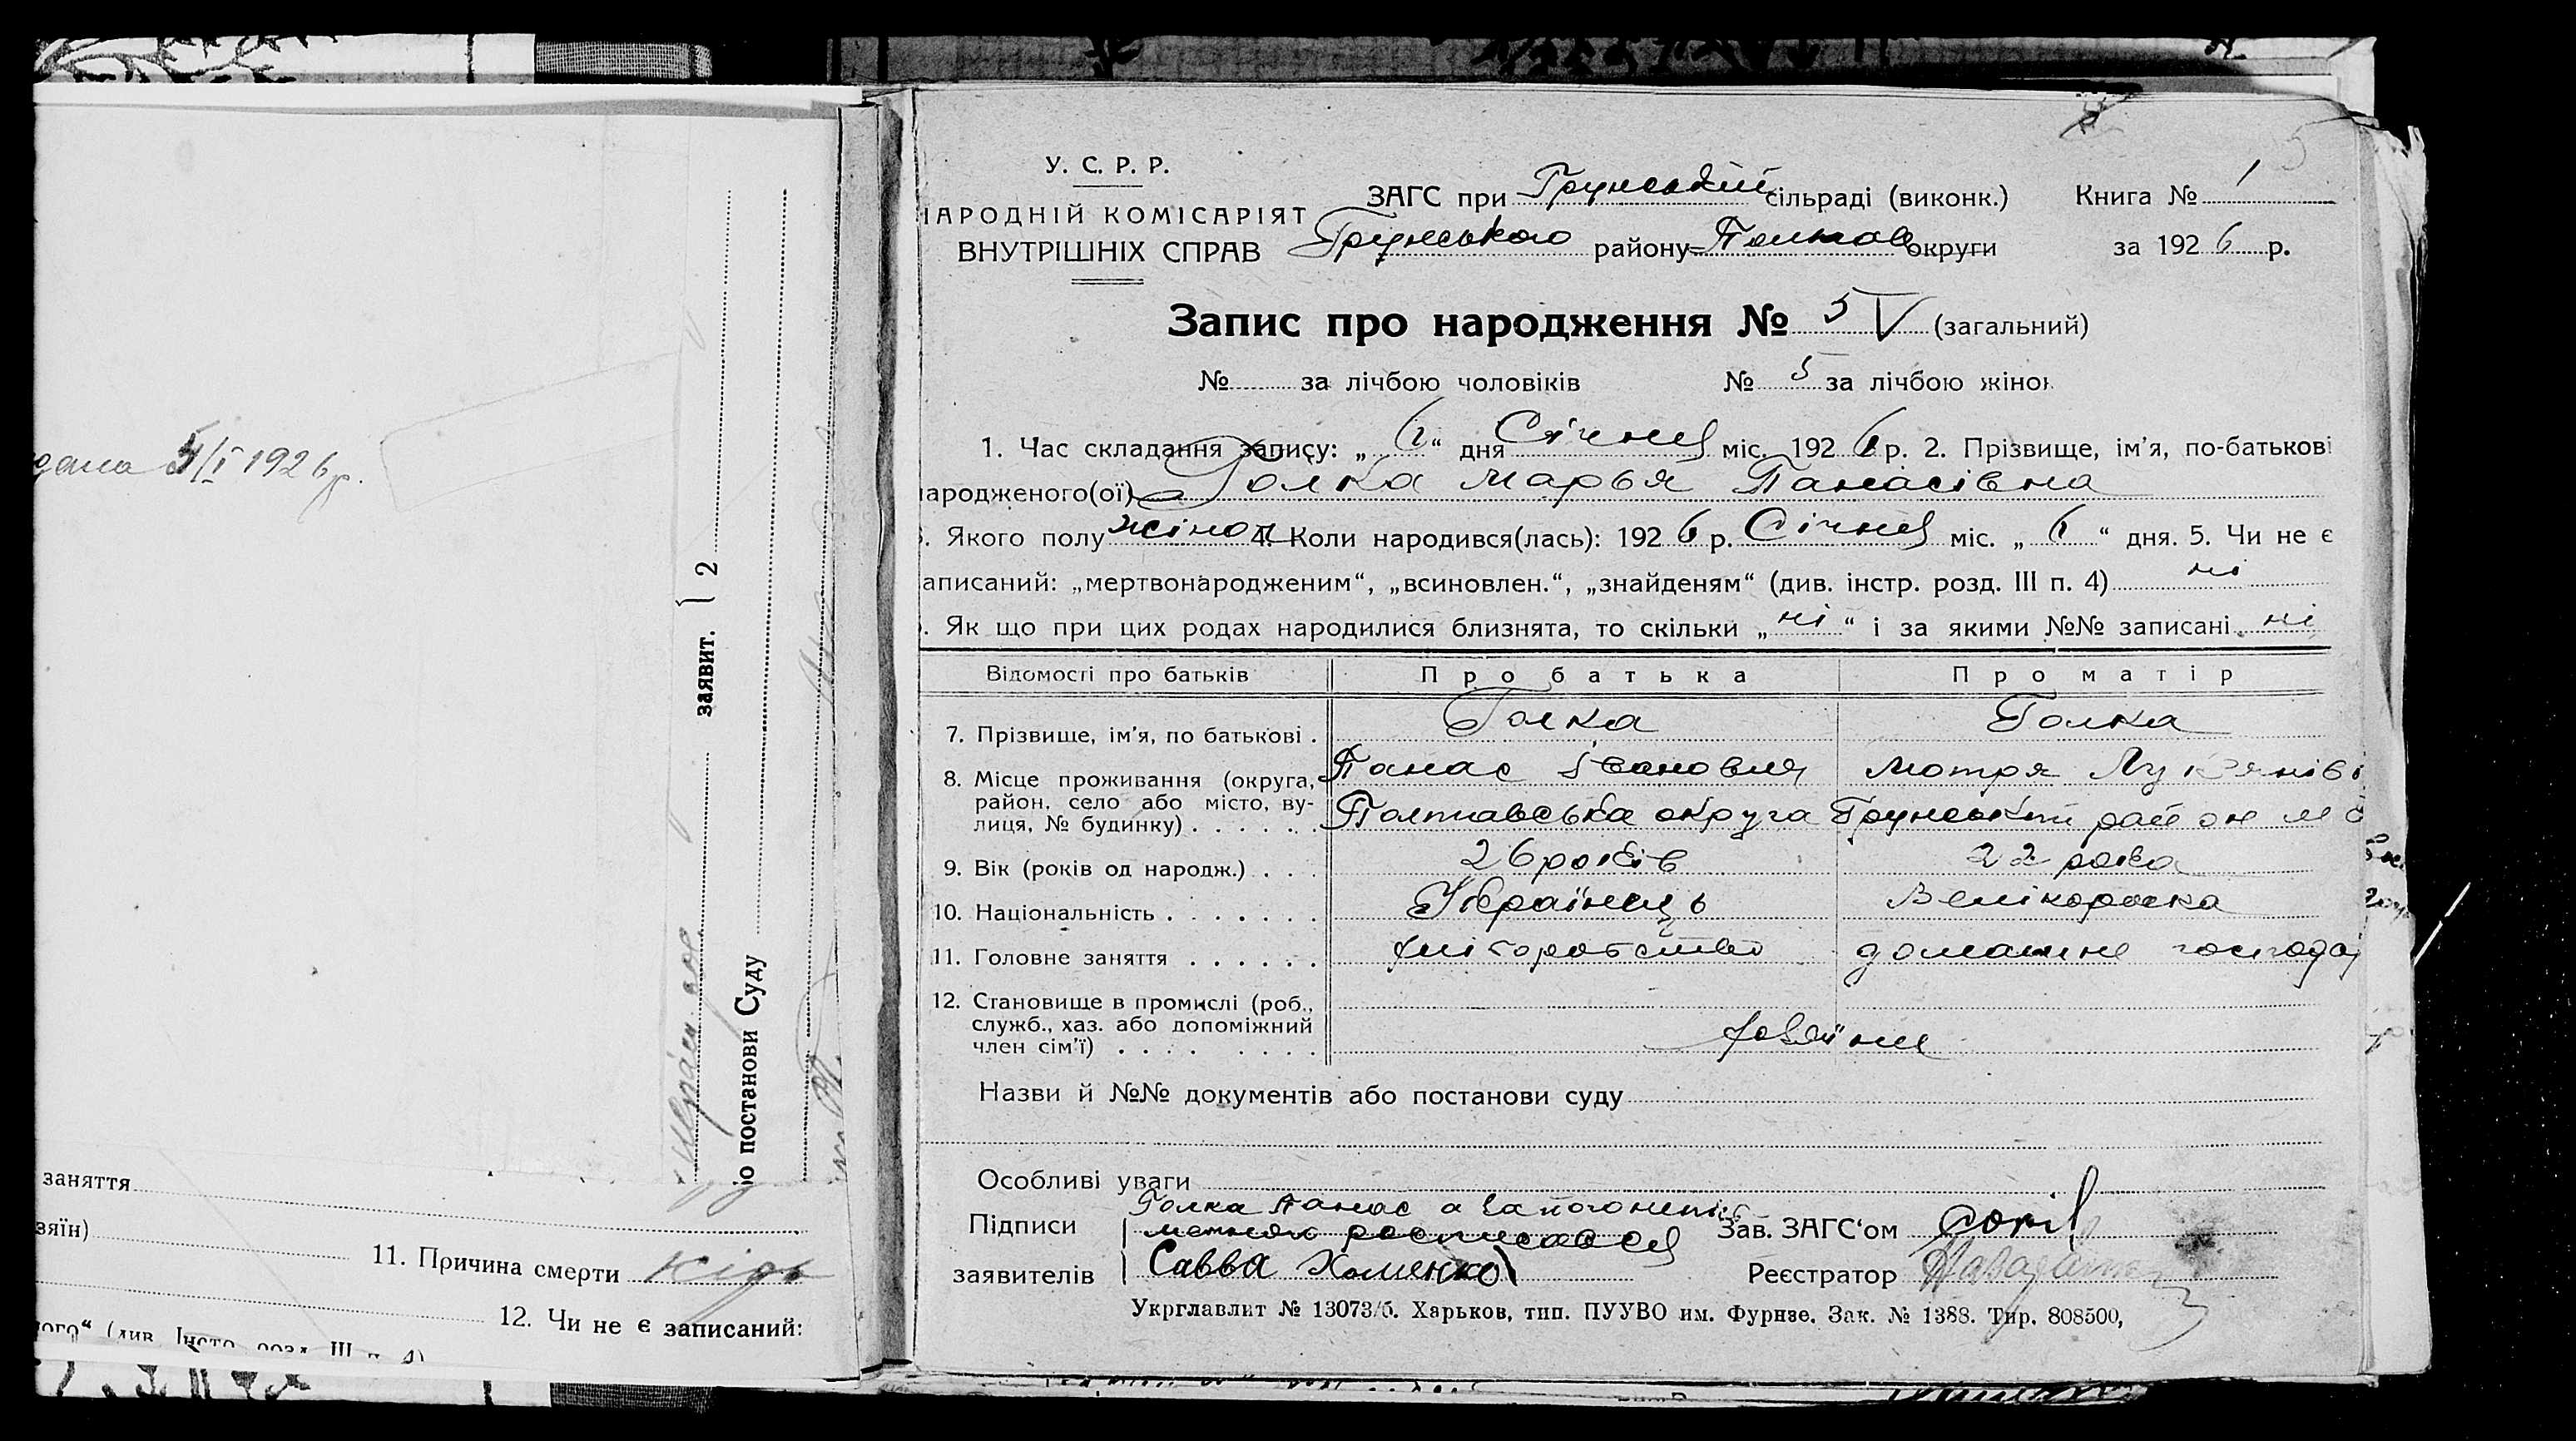 дана 5/I 1926 р.
заявит. { 2
іо постанови Суду
заняття
зяїн)
11. Причина смерти кіръ
12. Чи не є записаний:
ого“ (див. Інстр. розд. III п. 4)
5
У. С. Р. Р.
НАРОДНІЙ КОМІСАРІЯТ
ВНУТРІШНІХ СПРАВ
ЗАГС при Грунський сільраді (виконк.)
Грунського району Полтав округи
Книга № 1
за 1926 р.
Запис про народження № 5 V (загальний)
№ за лічбою чоловіків № 5 за лічбою жінок
1. Час складання запису: „ 6 “ дня Січня міс. 1926 р. 2. Прізвище, ім’я, по-батькові
народженого(ої) Голка Марья Панасівна
3. Якого полу жіноч 4. Коли народився(лась): 1926 р. Січня міс. „ 6 “ дня. 5. Чи не є
записаний: „мертвонародженим“, „всиновлен.“, „знайденям“ (див. інстр. розд. III п. 4) ні
6. Як що при цих родах народилися близнята, то скільки „ ні “ і за якими №№ записані ні
Відомості про батьків Про батька Про матір
7. Прізвище, ім’я, по батькові . Голка Голка
Панас Іванович Мотря Лукянівн
8. Місце проживання (округа, район, село або місто, вулиця, № будинку) . . . . . . Полтавська округа Грунський район м
9. Вік (років од народж.) . . . 26 років 22 рока
10. Національність . . . . . . . Українець Велікороска
11. Головне заняття . . . . . . хліборобство домашнє господар
12. Становище в промислі (роб., служб., хаз. або допоміжний член сім’ї) . . . . . . . . хазяїни
Назви й №№ документів або постанови суду
Особливі уваги
Підписи
заявителів
Голка Панас а за його неписьменням росписався
Савва Хоменко
Зав. ЗАГС‘ом
Реєстратор
Укрглавлит № 13073/б. Харьков, тип. ПУУВО им. Фурнзе. Зак. № 1388. Тир. 808500,